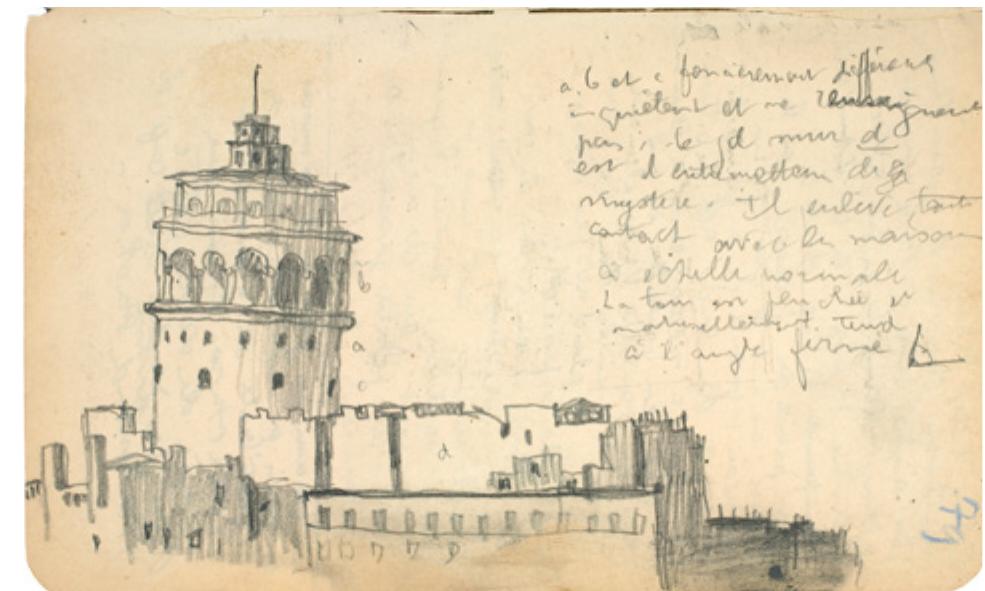 a. b et c foncièrement différents
inquiètent et ne renseignent
pas ; le gd mur d
est l'entremetteur de
mystère. Il enlève tout
contact avec les maisons
à échelle normale
La tour est penchée et
naturellement tend
à l'angle fermé
b
a
c
d